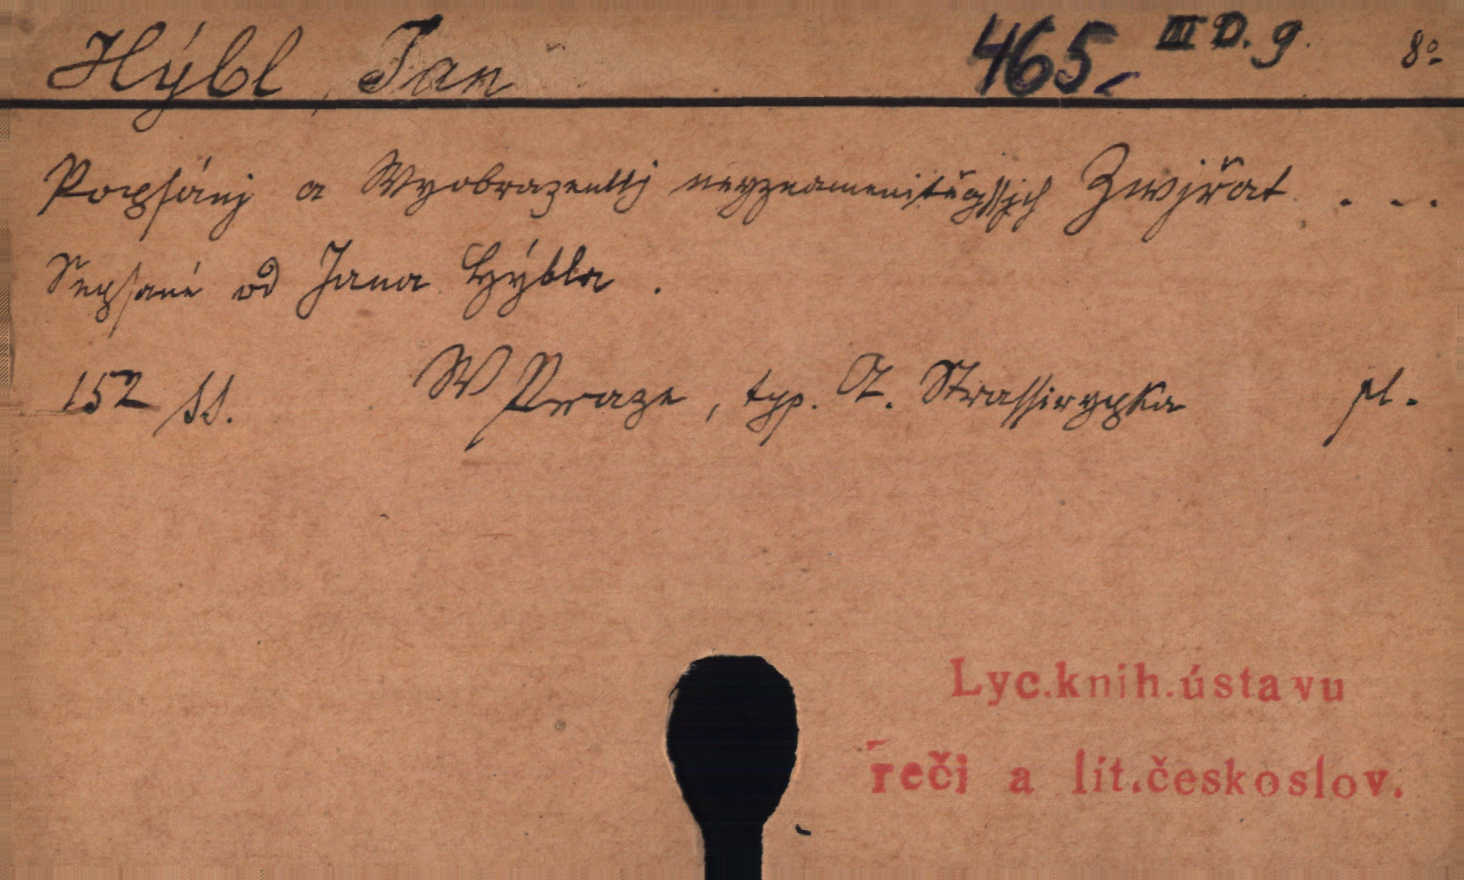 Hýbl, Jan 465. III D. g. 8º
Popsánj a Wyobrazenj neyznamenitěgssjch Zwjřat . . .
Sepsané od Jana Hýbla.
152 ss. W Praze, typ. A. Strassirypka pl.
Lyc.knih.ústavu
řeči a lit.českoslov.